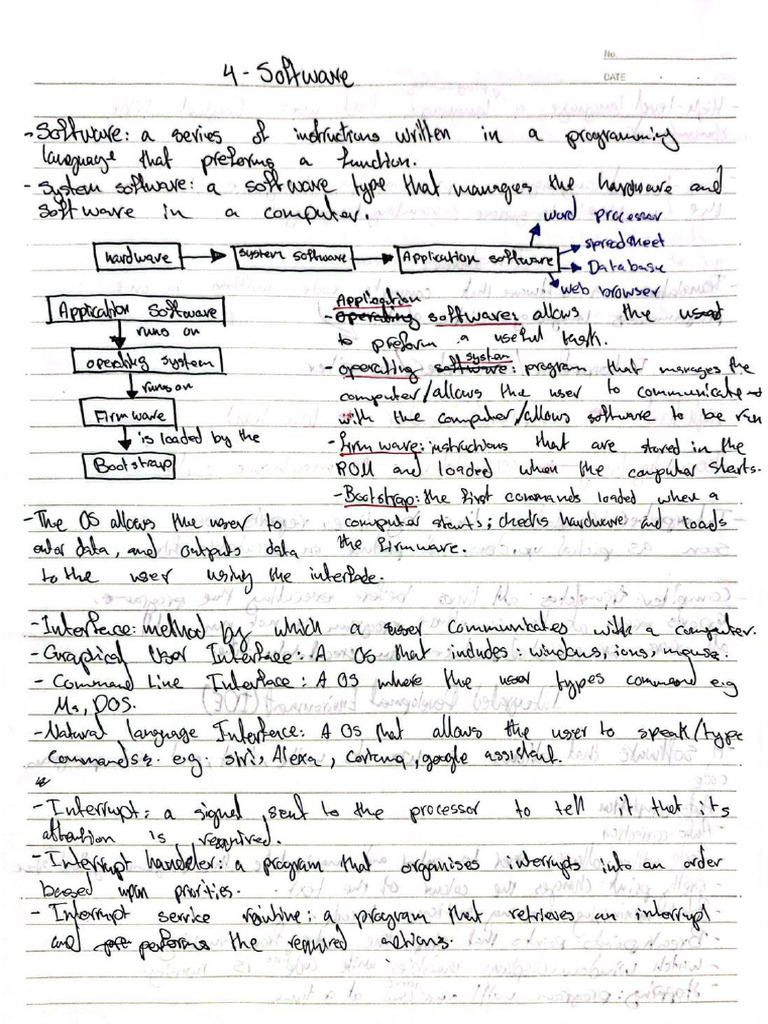 No.
DATE
4 - Software
- Software: a series of instructions written in a programming
language that preforms a function.
- System software: a software type that manages the hardware and
software in a computer.
word processor
hardware
system software
Application software
spreadsheet
Database
web browser
Application Software
runs on
operating system
runs on
Firmware
is loaded by the
Bootstrap
Application
- operating software: allows the user
to preform a useful task.
system
- operating software: program that manages the
computer/allows the user to communicate
with the computer/allows software to be run
- Firmware: instructions that are stored in the
ROM and loaded when the computer starts.
- Bootstrap: the first commands loaded when a
computer starts; checks hardware and loads
the firmware.
- The OS allows the user to
enter data, and outputs data
to the user using the interface.
- Interface: method by which a user communicates with a computer.
- Graphical User Interface: A OS that includes: windows, icns, mouse.
- Command Line Interface: A OS where the user types command e.g
Ms, DOS.
- Natural language Interface: A OS that allows the user to speak/type
commands. e.g. siri, Alexa, cortana, google assistant.
- Interrupt: a signal sent to the processor to tell it that its
attention is required.
- Interrupt handeler: a program that organises interrupts into an order
based upon priorities.
- Interrupt service routine: a program that retrieves an interrupt
and performs the required actions.